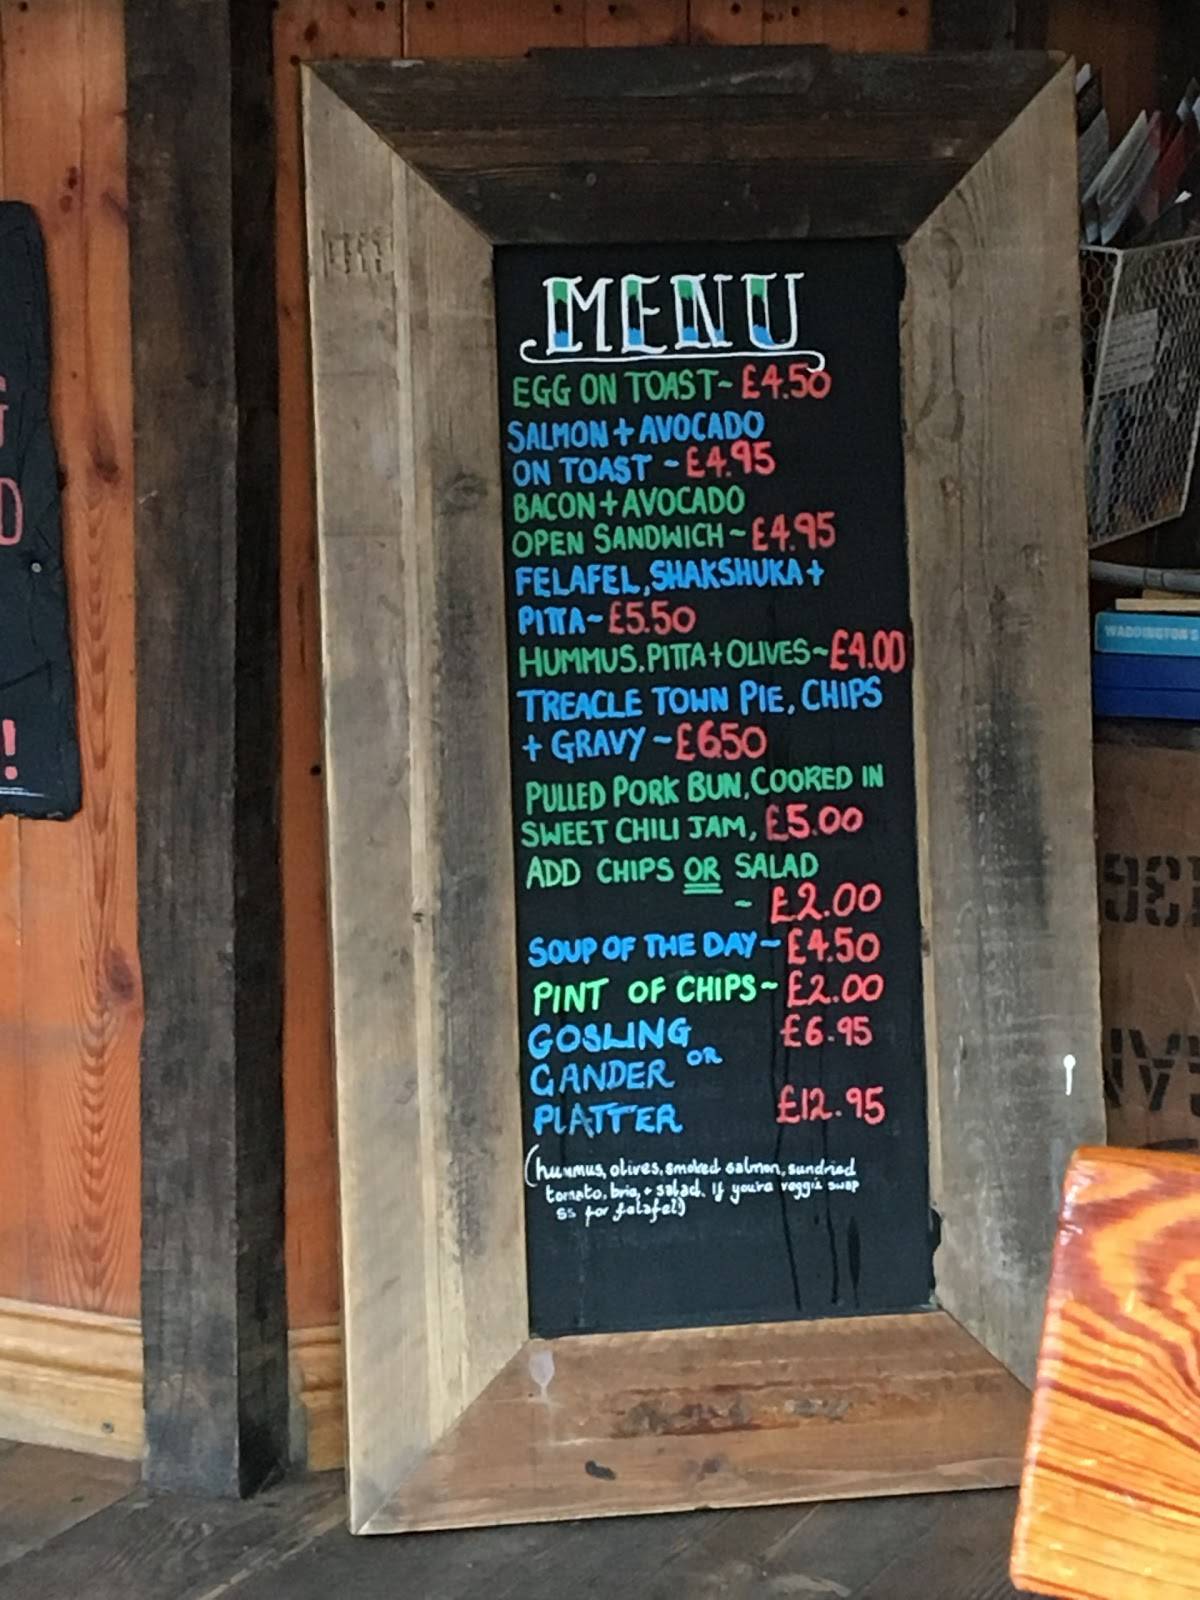 MENU
EGG ON TOAST~ £4.50
SALMON + AVOCADO
ON TOAST ~£4.95
BACON + AVOCADO
OPEN SANDWICH ~ £4.95
FELAFEL, SHAKSHUKA +
PITTA~ £5.50
HUMMUS, PITTA + OLIVES~£4.00
TREACLE TOWN PIE, CHIPS
+ GRAVY ~£6.50
PULLED PORK BUN, COOKED IN
SWEET CHILI JAM, £5.00
ADD CHIPS OR SALAD
~ £2.00
SOUP OF THE DAY~ £4.50
PINT OF CHIPS~ £2.00
GOSLING £6.95
OR
GANDER
PLATTER £12.95
(hummus, olives, smoked salmon, sundried
tomato, brie, + salad. If you're veggie swap
ss for falafel!)
WADDINGTON'S